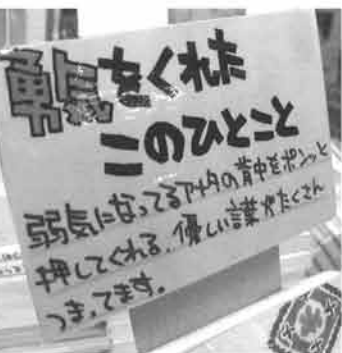 勇気をくれた
このひとこと
弱気になってるアナタの背中をポンッと
押してくれる、優しい言葉がたくさん
つまってます。